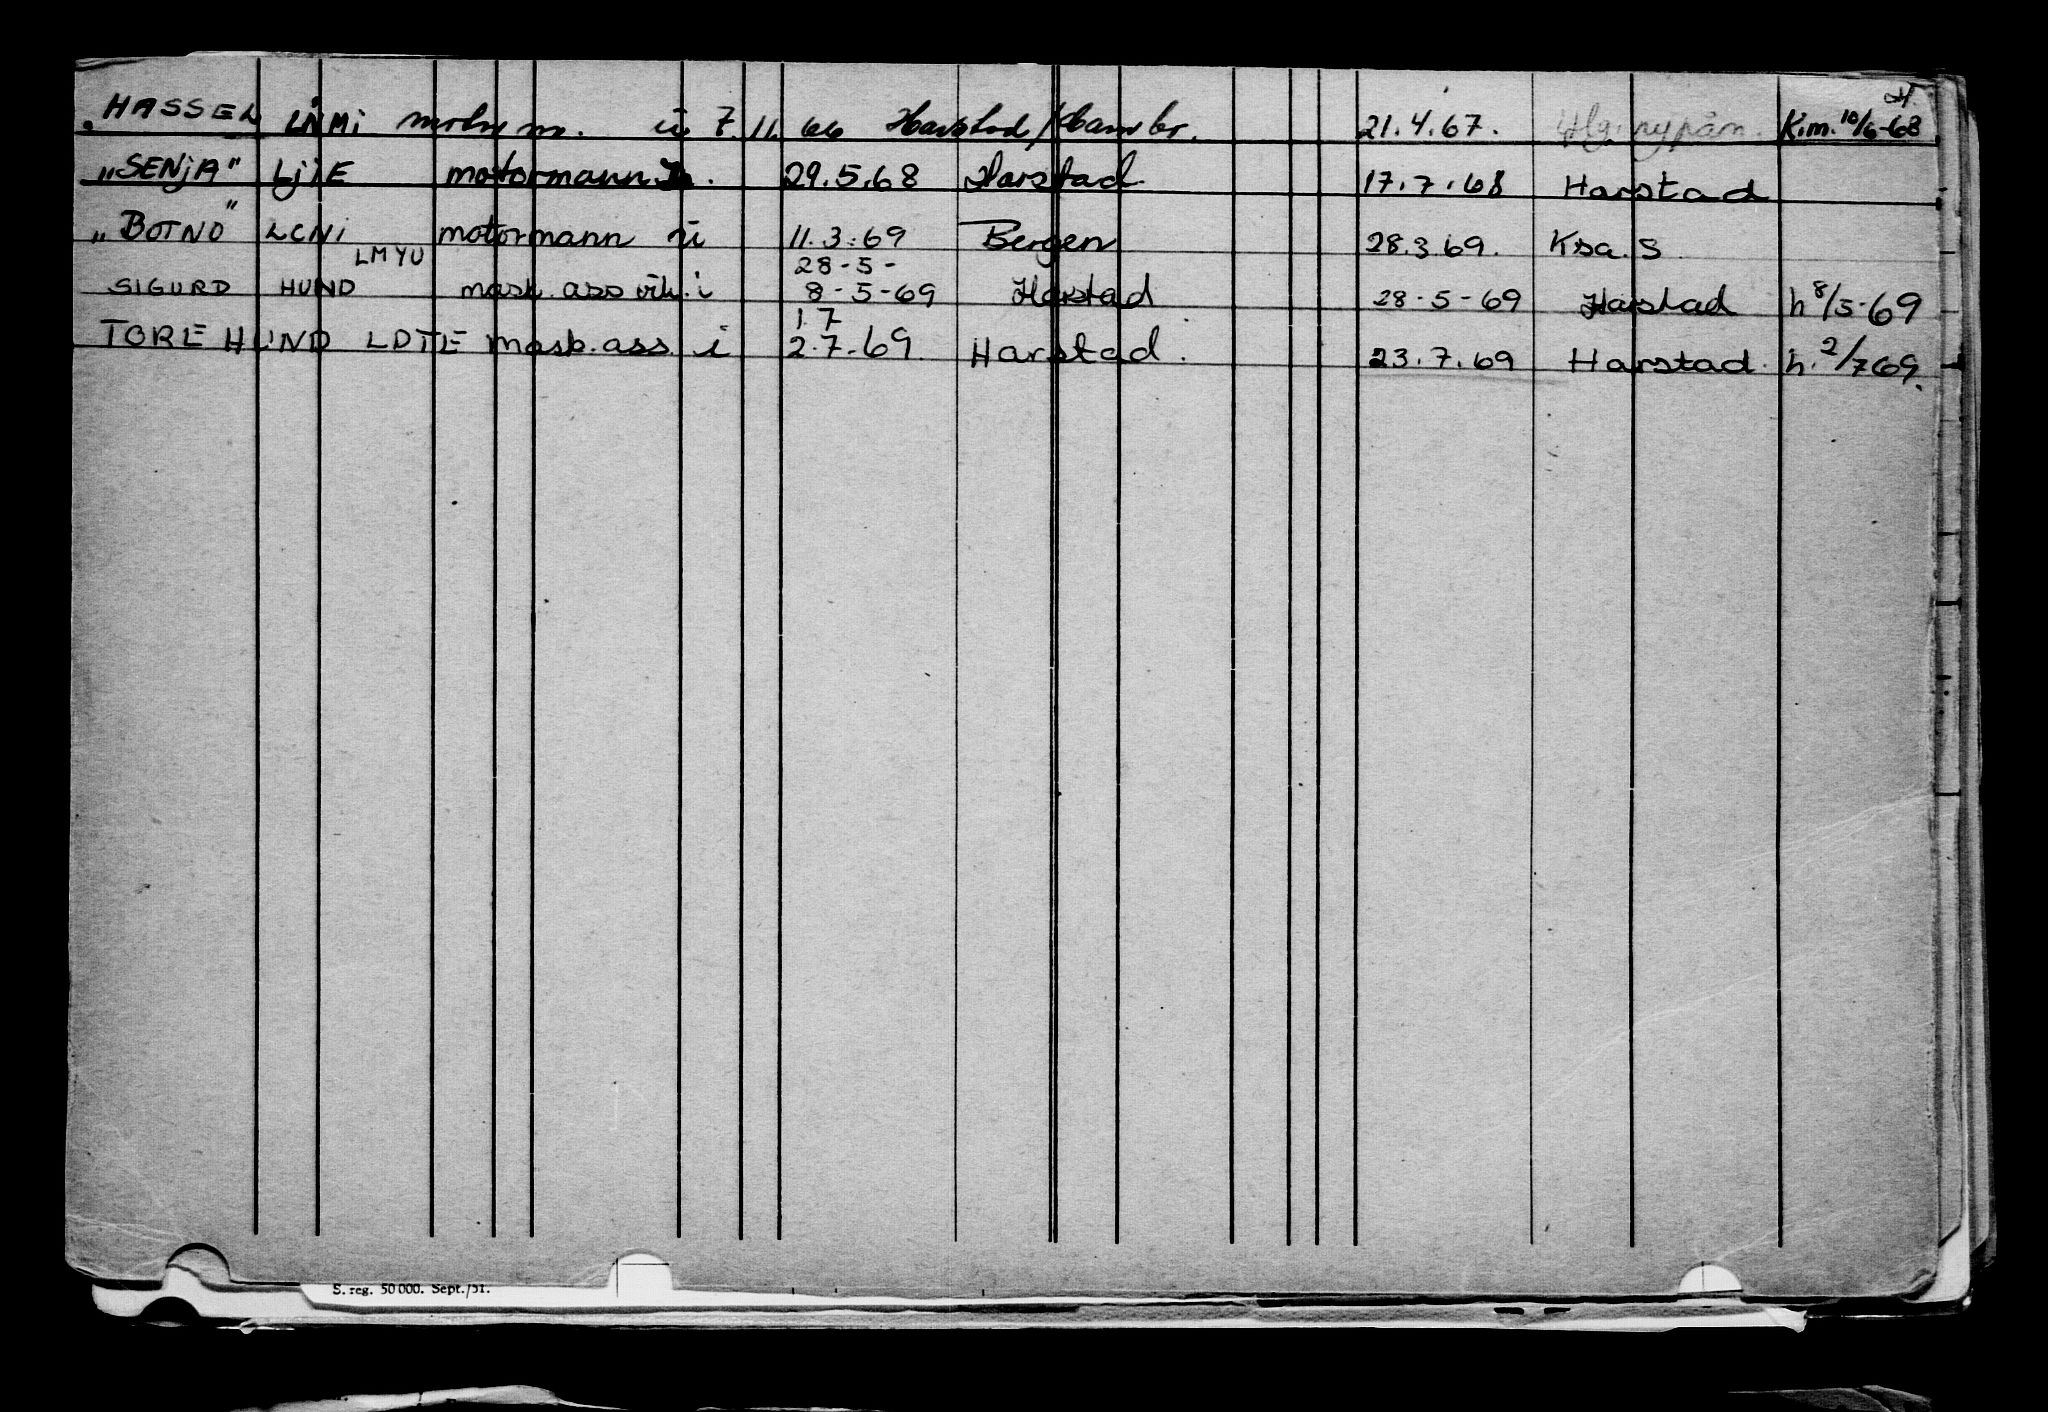 HASSEL LNMi motorm. ü 7.11.66 Harstad/Hambr. 21.4.67. K.m. 10/6-68
„SENjA" LjiE motormann 29.5.68 Harstad. 17.7.68 Harstad
„BOTNO" LCNi motormann ü 11.3.69 Bergen 28.3.69. Ksa. S
LMYU 28-5-
SIGURD HUND mask. ass vik. i 8-5-69 Harstad 28-5-69 Harstad h 8/5-69
1.7
TORE HUND LDTE mask. ass. i 2.7.69. Harstad. 23.7.69 Harstad. h. 2/7 69.
S. reg. 50 000. Sept./51.